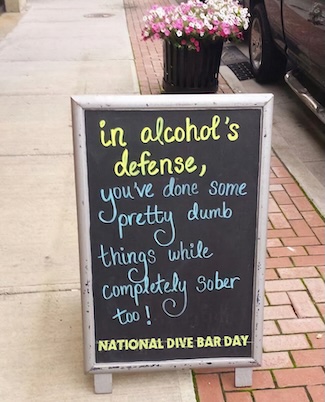 in alcohol's
defense,
you've done some
pretty dumb
things while
completely sober
too!
NATIONAL DIVE BAR DAY